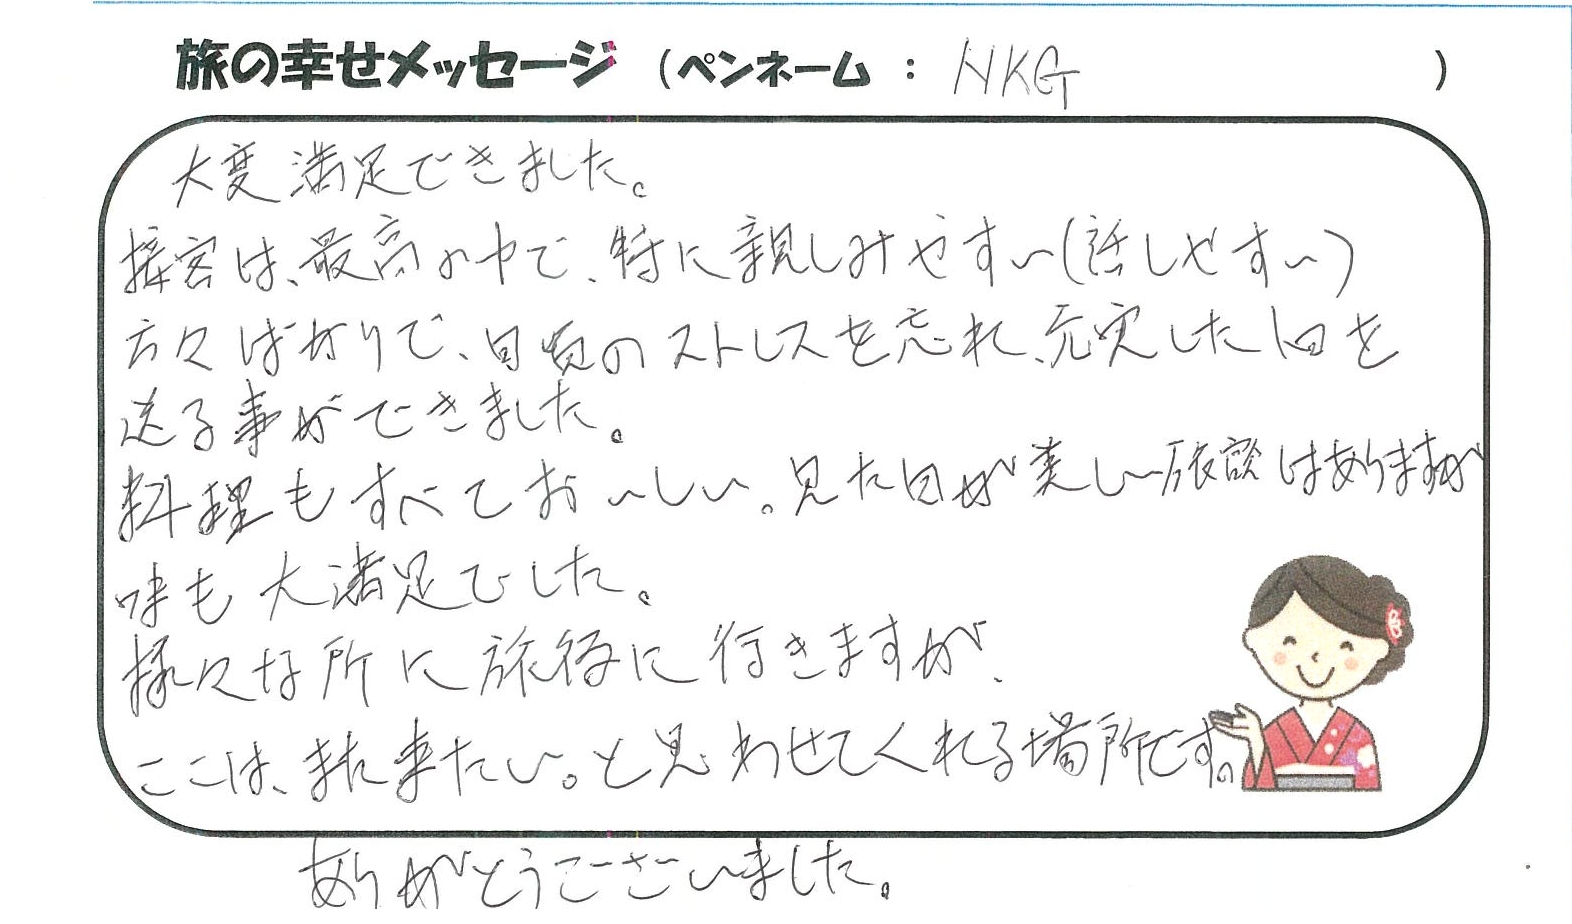 旅の幸せメッセージ (ペンネーム : NKG )
大変満足できました。
接客は、最高の中で、特に親しみやすい(話しやすい)
方々ばかりで、日頃のストレスを忘れ、充実した1日を
送る事ができました。
料理もすべておいしい。見た目が美しい旅館はありますが
味も大満足でした。
様々な所に旅行に行きますが、
ここは、また来たい。と思わせてくれる場所です。
ありがとうございました。